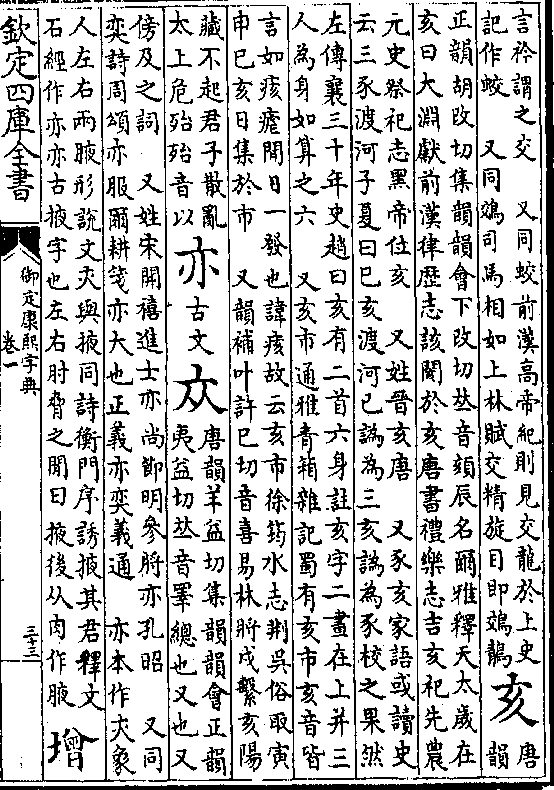 言衿謂之交　又同蛟前漢高帝紀則見交龍於上史
記作蛟　又同鵁司馬相如上林賦交精旋目即鵁鶄
亥
唐
韻
正韻胡改切集韻韻會下改切𠀤音頦辰名爾雅釋天太歲在
亥曰大淵獻前漢律歷志該閡於亥唐書禮樂志吉亥祀先農
元史祭祀志黑帝位亥　又姓晉亥唐　又豕亥家語或讀史
云三豕渡河子夏曰巳亥渡河巳譌為三亥譌為豕校之果然
左傳襄三十年史趙曰亥有二首六身註亥字二畫在上并三
人為身如算之六　又亥市通雅青箱雜記蜀有亥市亥音皆
言如痎瘧閒日一發也諱痎故云亥市徐筠水志荆吳俗取寅
申巳亥日集於市　又韻補叶許巳切音喜易林將戍繫亥陽
藏不起君子散亂
太上危殆殆音以
亦
古文
唐韻羊益切集韻韻會正韻
夷益切𠀤音睪總也又也又
傍及之詞　又姓宋開禧進士亦尚節明參將亦孔昭　又同
奕詩周頌亦服爾耕箋亦大也正義亦奕義通　亦本作夾象
人左右兩腋形說文夾與掖同詩衡門序誘掖其君釋文
石經作亦亦古掖字也左右肘脅之閒曰掖後从肉作腋
增
欽定四庫全書
御定康熙字典
卷一
三十三